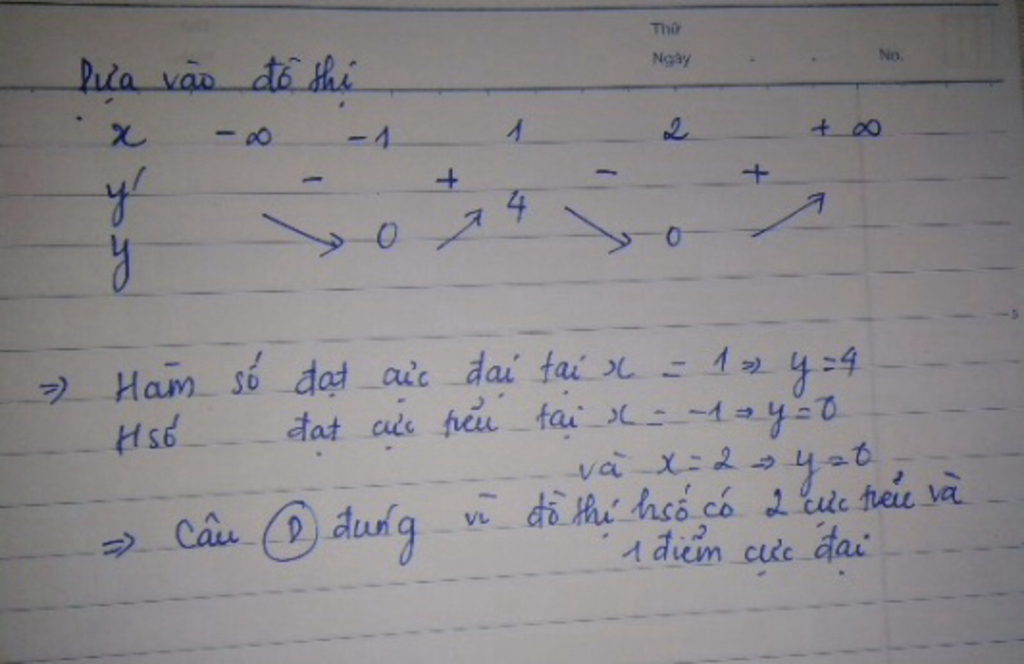 Thứ
Ngày . . No.
Dựa vào đồ thị
x -∞ -1 1 2 +∞
y' - + - +
y ↘ 0 ↗ 4 ↘ 0 ↗
⇒ Hàm số đạt cực đại tại x = 1 ⇒ y = 4
H số đạt cực tiểu tại x = -1 ⇒ y = 0
và x = 2 ⇒ y = 0
⇒ Câu D đúng vì đồ thị hsố có 2 cực tiểu và
1 điểm cực đại